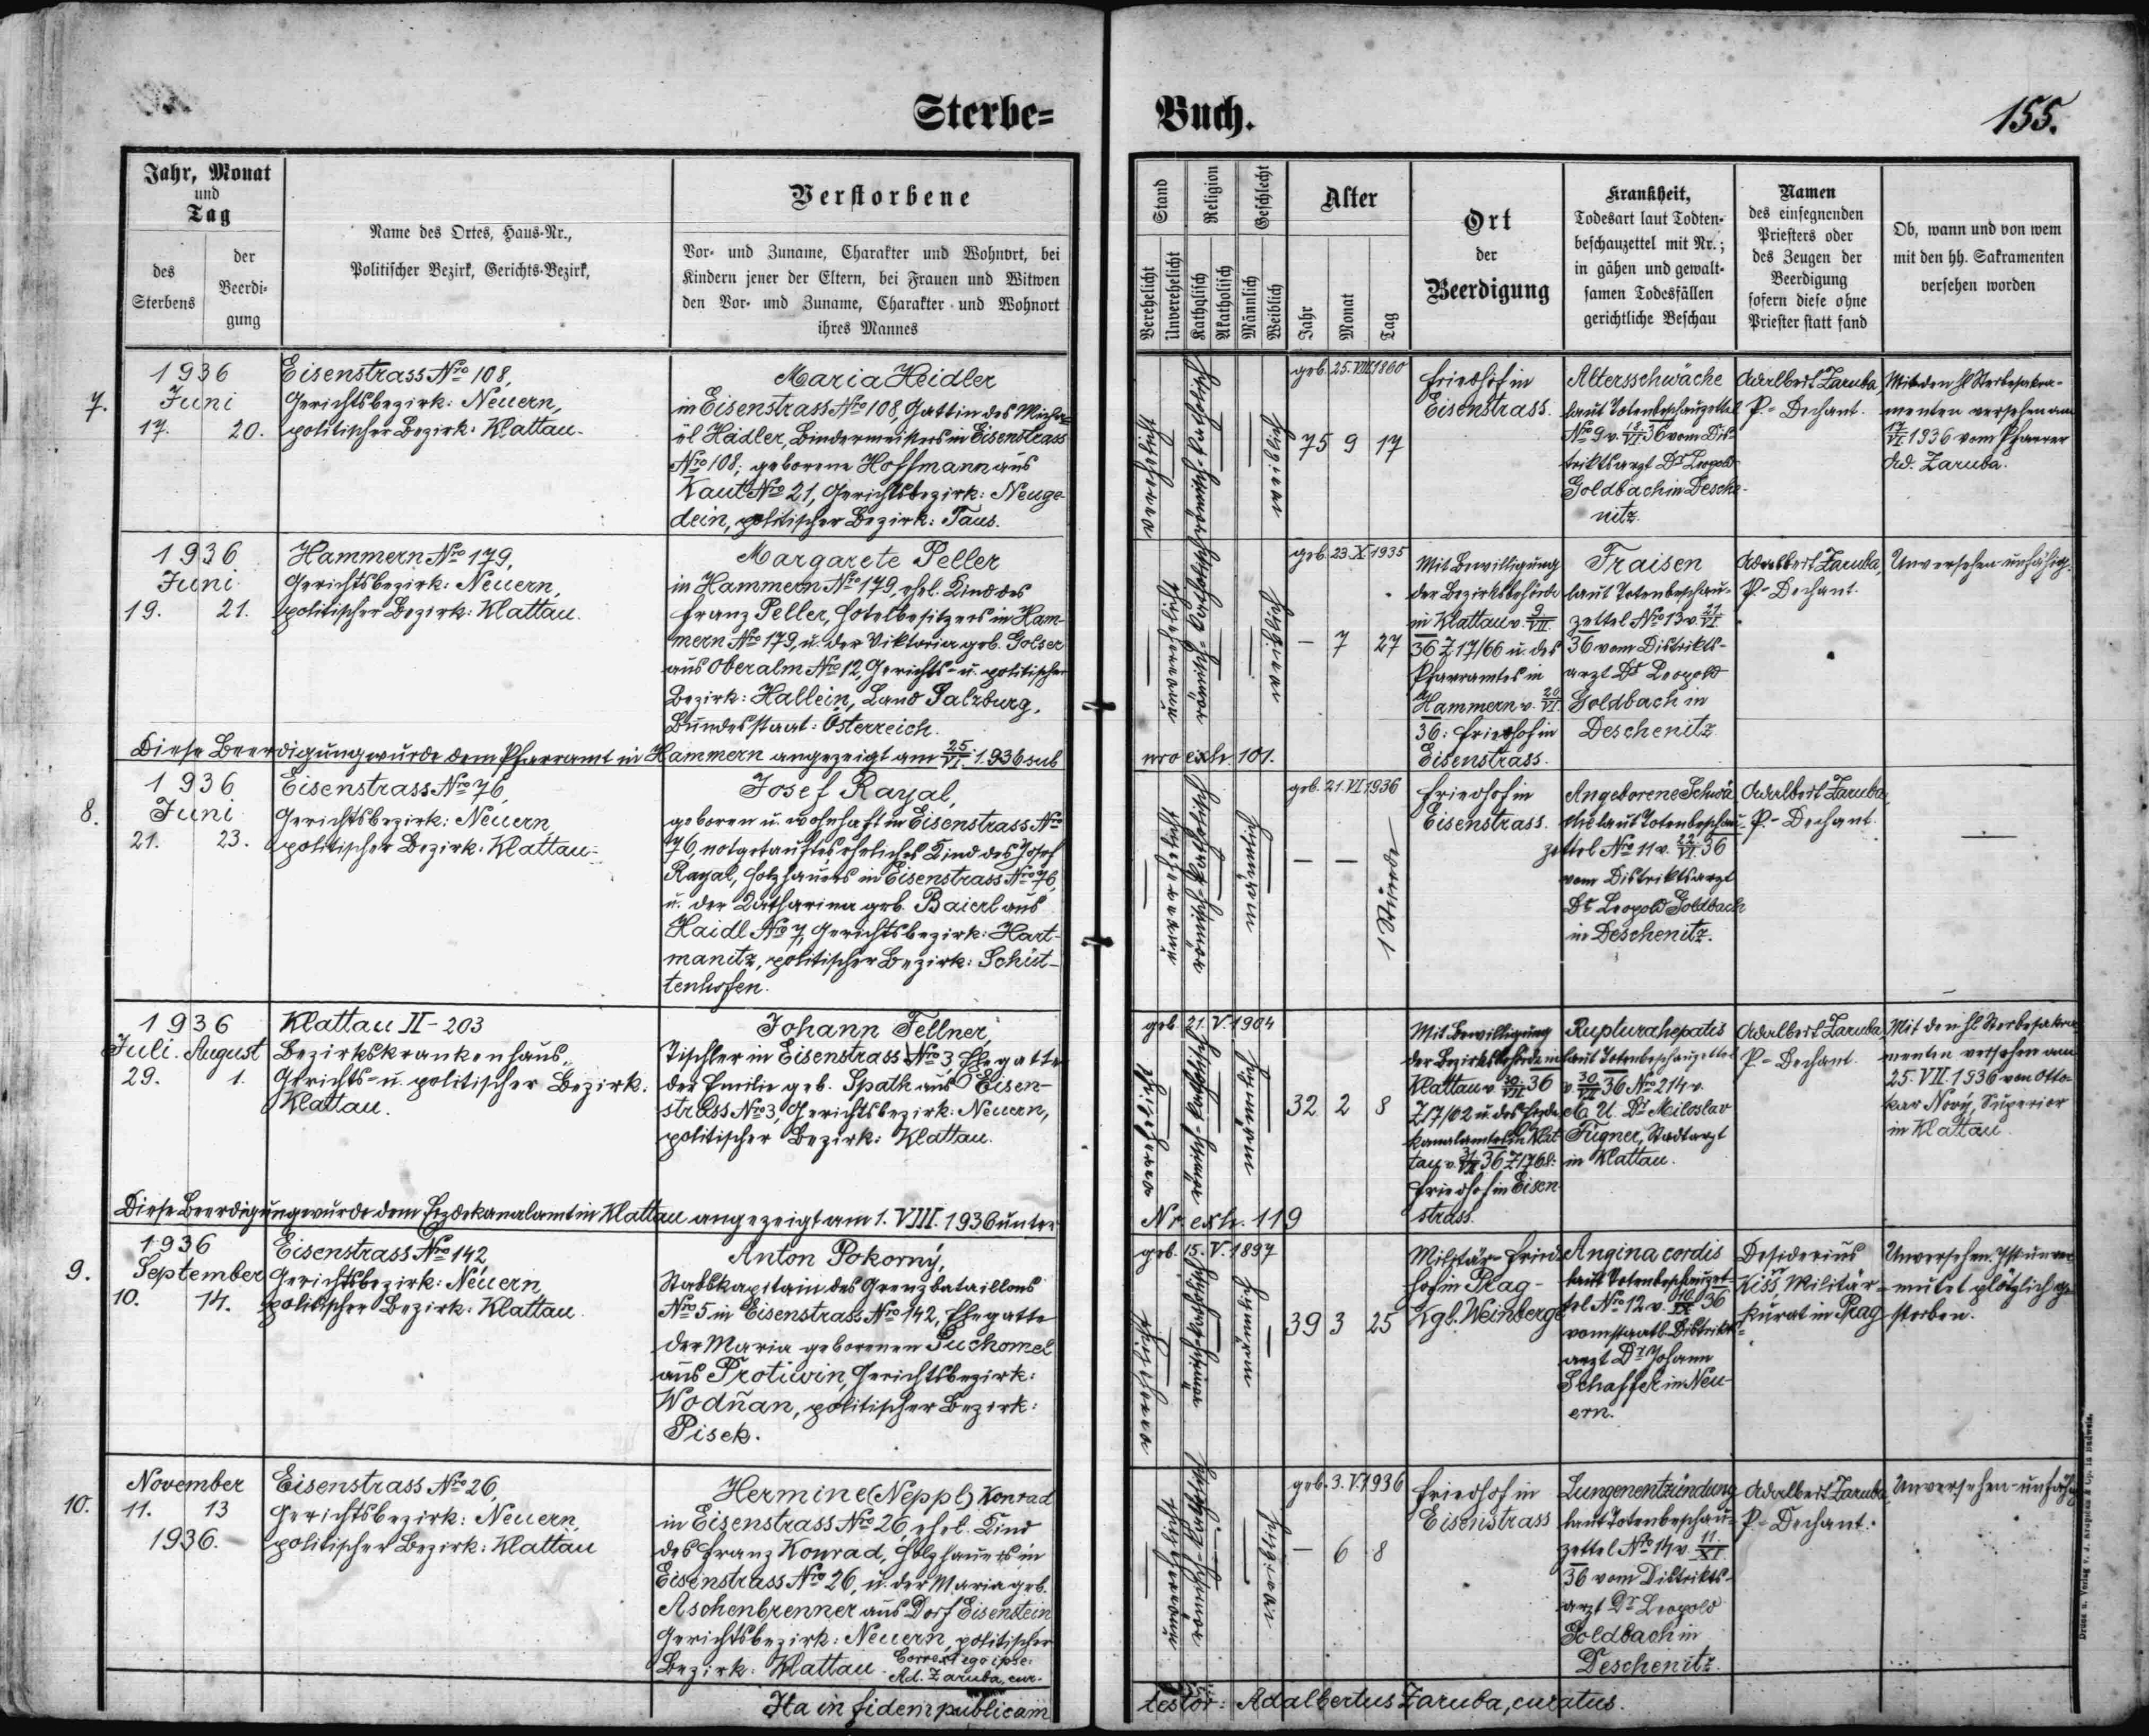 Sterbe=
Buch.
155.
Jahr, Monat
und
Tag
des
Sterbens
der
Beerdi-
gung
Name des Ortes, Haus-Nr.,
Politischer Bezirk, Gerichts-Bezirk,
Verstorbene
Vor- und Zuname, Charakter und Wohnort, bei
Kindern jener der Eltern, bei Frauen und Witwen
den Vor- und Zuname, Charakter und Wohnort
ihres Mannes
Stand
Verehelicht
Unverehelicht
Religion
Katholisch
Akatholisch
Geschlecht
Männlich
Weiblich
Alter
Jahr
Monat
Tag
Ort
der
Beerdigung
Krankheit,
Todesart laut Todten-
beschauzettel mit Nr.;
in gähen und gewalt-
samen Todesfällen
gerichtliche Beschau
Namen
des einsegnenden
Priesters oder
des Zeugen der
Beerdigung
sofern diese ohne
Priester statt fand
Ob, wann und von wem
mit den hh. Sakramenten
versehen worden
7.
1936
Juni
17. 20.
Eisenstrass Nro 108,
Gerichtsbezirk: Neuern,
politischer Bezirk: Klattau.
Maria Heidler
in Eisenstrass Nro 108, Gattin des Micha-
el Haidler, Bindermeisters in Eisenstrass
Nro 108; geborene Hoffmann aus
Kaut Nro 21, Gerichtsbezirk: Neuge-
dein, politischer Bezirk: Taus.
verehelicht
römisch-katholisch
weiblich
geb. 25. VIII. 1860
75 9 17
Friedhof in
Eisenstrass.
Altersschwäche
laut Totenbeschauzettel
Nro 9 v. 18./VI. 36 vom Dis-
triktsarzt Dr Leopold
Goldbach in Desche-
nitz.
Adalbert Zaruba,
P.- Dechant.
Mit den hl. Sterbesakra-
menten versehen am
17./VI. 1936 vom Pfarrer
Ad. Zaruba.
1936
Juni
19. 21.
Hammern Nro 179,
Gerichtsbezirk: Neuern,
politischer Bezirk: Klattau.
Margarete Peller
in Hammern Nro 179, ehel. Kind des
Franz Peller, Hotelbesitzers in Ham-
mern Nro 179, u. der Viktoria geb. Golser
aus Oberalm Nro 12, Gerichts- u. politischer
Bezirk: Hallein, Land Salzburg,
Bundesstaat: Österreich.
unverehelicht
römisch-katholisch
weiblich
geb. 23. X. 1935
— 7 27
Mit Bewilligung
der Bezirksbehörde
in Klattau v. 9/VII.
36 Z 17/66 u. des
Pfarramtes in
Hammern v. 20/VI.
36: Friedhof in
Eisenstrass.
Fraisen
laut Totenbeschau-
zettel Nro 13 v. 21/VI.
36 vom Distrikts-
arzt Dr Leopold
Goldbach in
Deschenitz
Adalbert Zaruba,
P.- Dechant.
Unversehen - unfähig.
Diese Beerdigung wurde dem Pfarramt in Hammern angezeigt am 25/VI. 1936 sub nro exh. 101.
8.
1936
Juni
21. 23.
Eisenstrass Nro 76,
Gerichtsbezirk: Neuern,
politischer Bezirk: Klattau.
Josef Rayal,
geboren u. wohnhaft in Eisenstrass Nro
76, notgetauftes eheliches Kind des Josef
Rayal, Holzhauers in Eisenstrass Nro 76,
u. der Katharina geb. Baierl aus
Haidl Nro 7, Gerichtsbezirk: Hart-
manitz, politischer Bezirk: Schüt-
tenhofen.
unverehelicht
römisch-katholisch
männlich
geb. 21. VI. 1936
— — 1 Stunde
Friedhof in
Eisenstrass.
Angeborene Schwä-
che laut Totenbeschau-
zettel Nro 11 v. 22/VI. 36
vom Distriktsarzt
Dr Leopold Goldbach
in Deschenitz.
Adalbert Zaruba,
P.- Dechant.
—
1936
Juli. August
29. 1.
Klattau II - 203
Bezirkskrankenhaus,
Gerichts- u. politischer Bezirk:
Klattau.
Johann Fellner,
Tischler in Eisenstrass Nro 3, Ehegatte
der Emilie geb. Spath aus Eisen-
strass Nro 3, Gerichtsbezirk: Neuern,
politischer Bezirk: Klattau.
verehelicht
römisch-katholisch
männlich
geb. 21. V. 1904
32 2 8
Mit Bewilligung
der Bezirksbehörde in
Klattau v. 30/VII. 36
Z 17/62 u. des Erzde-
kanalamtes in Klat-
tau v. 31/VII 36 Z 1768:
Friedhof in Eisen-
strass.
Ruptura hepatis
laut Totenbeschauzettel
v. 30/VII 36 Nro 214 v.
M. U. Dr Miloslav
Fügner, Stadtarzt
in Klattau.
Adalbert Zaruba,
P.- Dechant.
Mit den hl. Sterbesakra-
menten versehen am
25. VII. 1936 von Otto-
kar Nový, Superior
in Klattau.
Diese Beerdigung wurde dem Erzdekanalamt in Klattau angezeigt am 1. VIII. 1936 unter Nr. exh. 119
9.
1936
September
10. 14.
Eisenstrass Nro 142,
Gerichtsbezirk: Neuern,
politischer Bezirk: Klattau.
Anton Pokorný,
Stabskapitain des Grenzbataillons
Nro 5 in Eisenstrass Nro 142, Ehegatte
der Maria geborenen Suchomel
aus Protiwin, Gerichtsbezirk:
Wodňan, politischer Bezirk:
Pisek.
verehelicht
römisch-katholisch
männlich
geb. 15. V. 1897
39 3 25
Militär-Fried-
hof in Prag-
Kgl. Weinberge
Angina cordis
laut Totenbeschauzet-
tel Nro 12 v. 10/IX 36
vom staatl. Distrikts-
arzt Dr Johann
Schaffer in Neu-
ern.
Desiderius
Kiss, Militär-
kurat in Prag
Unversehen. Ist unver-
mutet plötzlich ge-
storben.
10.
November
11. 13
1936.
Eisenstrass Nro 26,
Gerichtsbezirk: Neuern,
politischer Bezirk: Klattau
Hermine (Neppl) Konrad
in Eisenstrass Nro 26, ehel. Kind
des Franz Konrad, Holzhauers in
Eisenstrass Nro 26, u. der Maria geb.
Aschenbrenner aus Dorf Eisenstein
Gerichtsbezirk: Neuern, politischer
Bezirk: Klattau.
Correxi ego ipse:
Ad. Zaruba, cur.
unverehelicht
römisch-katholisch
weiblich
geb. 3. V. 1936
— 6 8
Friedhof in
Eisenstrass
Lungenentzündung
laut Totenbeschau-
zettel Nro 14 v. 11./XI.
36 vom Distrikts-
arzt Dr Leopold
Goldbach in
Deschenitz.
Adalbert Zaruba,
P.- Dechant.
Unversehen - unfähig
Ita in fidem publicam testor: Adalbertus Zaruba, curatus.